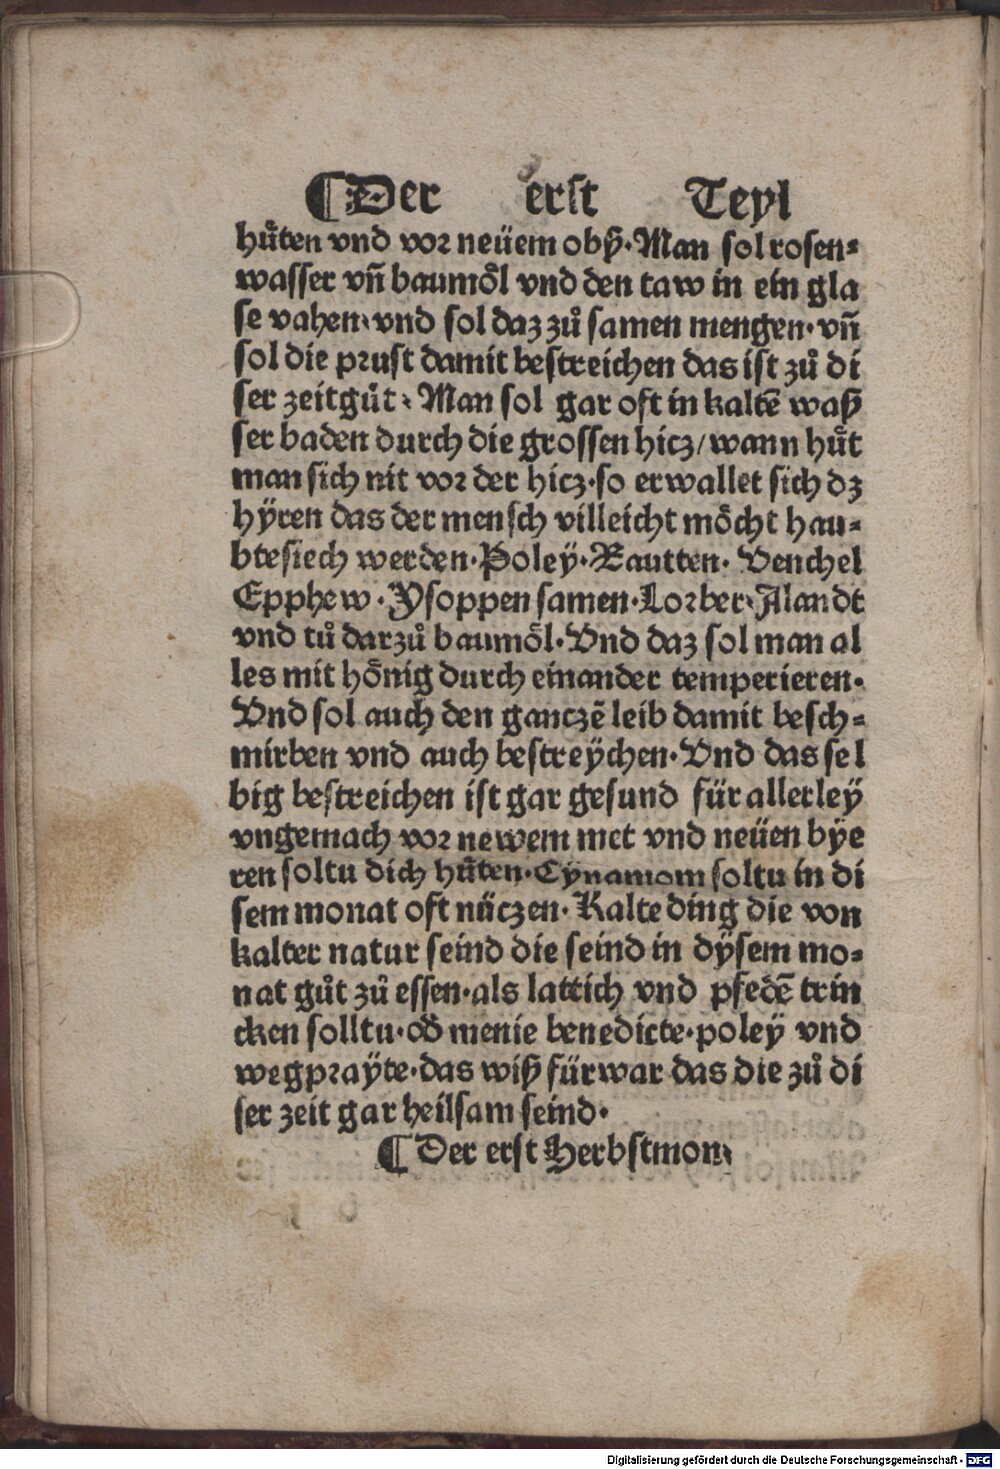 ¶ Der erst Teyl
huͤten vnd vor neüem obß. Man sol rosen-
wasser vn̄ baumoͤl vnd den taw in ein gla
se vahen, vnd sol daz zuͦ samen mengen. vn̄
sol die prust damit bestreichen das ist zuͦ di
ser zeit guͦt, Man sol gar oft in kaltē waß
ser baden durch die grossen hicz/ wann huͤt
man sich nit vor der hicz. so erwallet sich dz
hÿren das der mensch villeicht moͤcht hau-
btesiech werden. Poleÿ. Rautten. Venchel
Epphew. Ysoppen samen. Lorber, Alandt
vnd tuͦ darzuͦ baumoͤl. Vnd daz sol man al
les mit hoͤnig durch einander temperieren.
Vnd sol auch den ganczē leib damit besch-
mirben vnd auch bestreÿchen. Vnd das sel
big bestreichen ist gar gesund für allerleÿ
vngemach vor newem met vnd neüen bÿe
ren soltu dich huͤten. Cynamom soltu in di
sem monat oft nüczen. Kalte ding die von
kalter natur seind die seind in dÿsem mo-
nat guͦt zuͦ essen. als lattich vnd pfedē trin
cken solltu. od menie benedicte. poleÿ vnd
wegpraÿte. das wiß fürwar das die zuͦ di
ser zeit gar heilsam seind.
¶ Der erst Herbstmon,
Digitalisierung gefördert durch die Deutsche Forschungsgemeinschaft - DFG